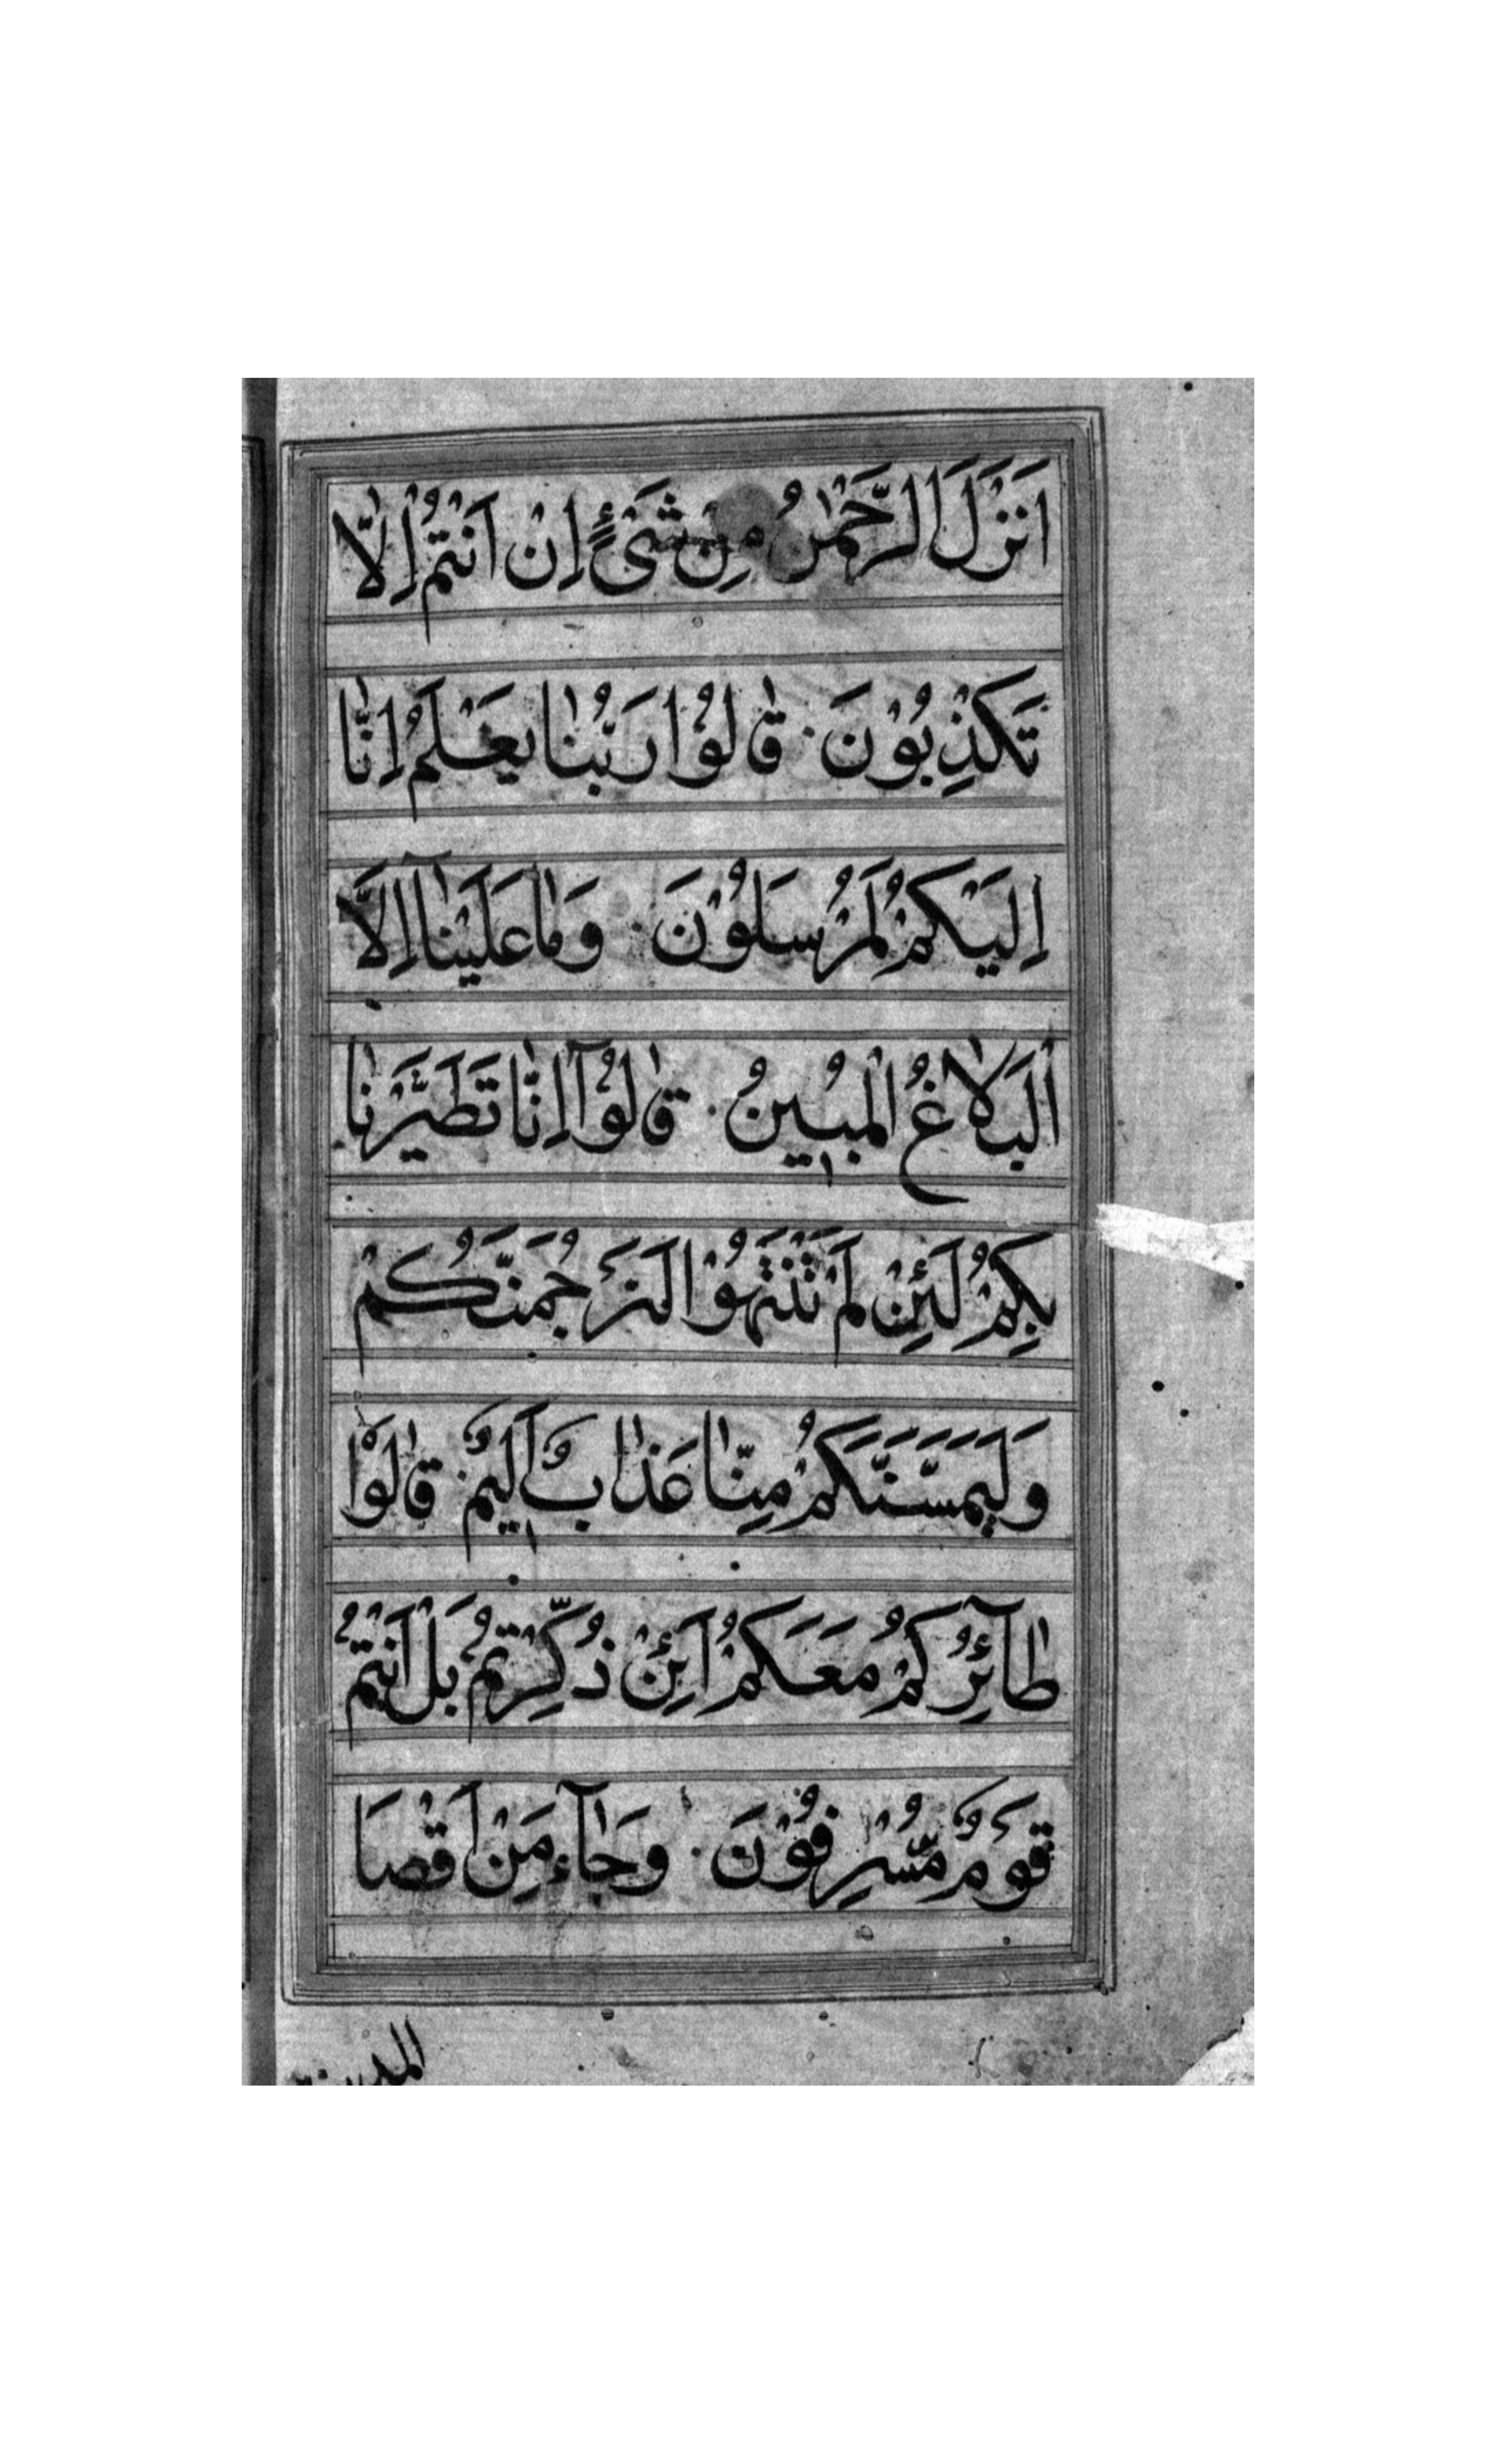 اَنْزَلَ الرَّحْمٰنُ مِنْ شَیْءٍ اِنْ اَنْتُمْ اِلّٰا
تَكْذِبُوْنَ قٰالُوْا رَبُّنٰا يَعْلَمُ اِنّٰا
اِلَيْكُمْ لَمُرْسَلُوْنَ وَمٰا عَلَيْنٰآ اِلَّا
الْبَلٰاغُ الْمُبٖينُ قٰالُوْآ اِنّٰا تَطَيَّرْنٰا
بِكُمْ لَئِنْ لَمْ تَنْتَهُوْا لَنَرْجُمَنَّكُمْ
وَلَيَمَسَّنَّكُمْ مِنّٰا عَذٰابٌ اَلٖيمٌ قٰالُوْا
طٰآئِرُكُمْ مَعَكُمْ اَئِنْ ذُكِّرْتُمْ بَلْ اَنْتُمْ
قَوْمٌ مُسْرِفُوْنَ وَجٰآءَ مِنْ اَقْصَا
المدينة